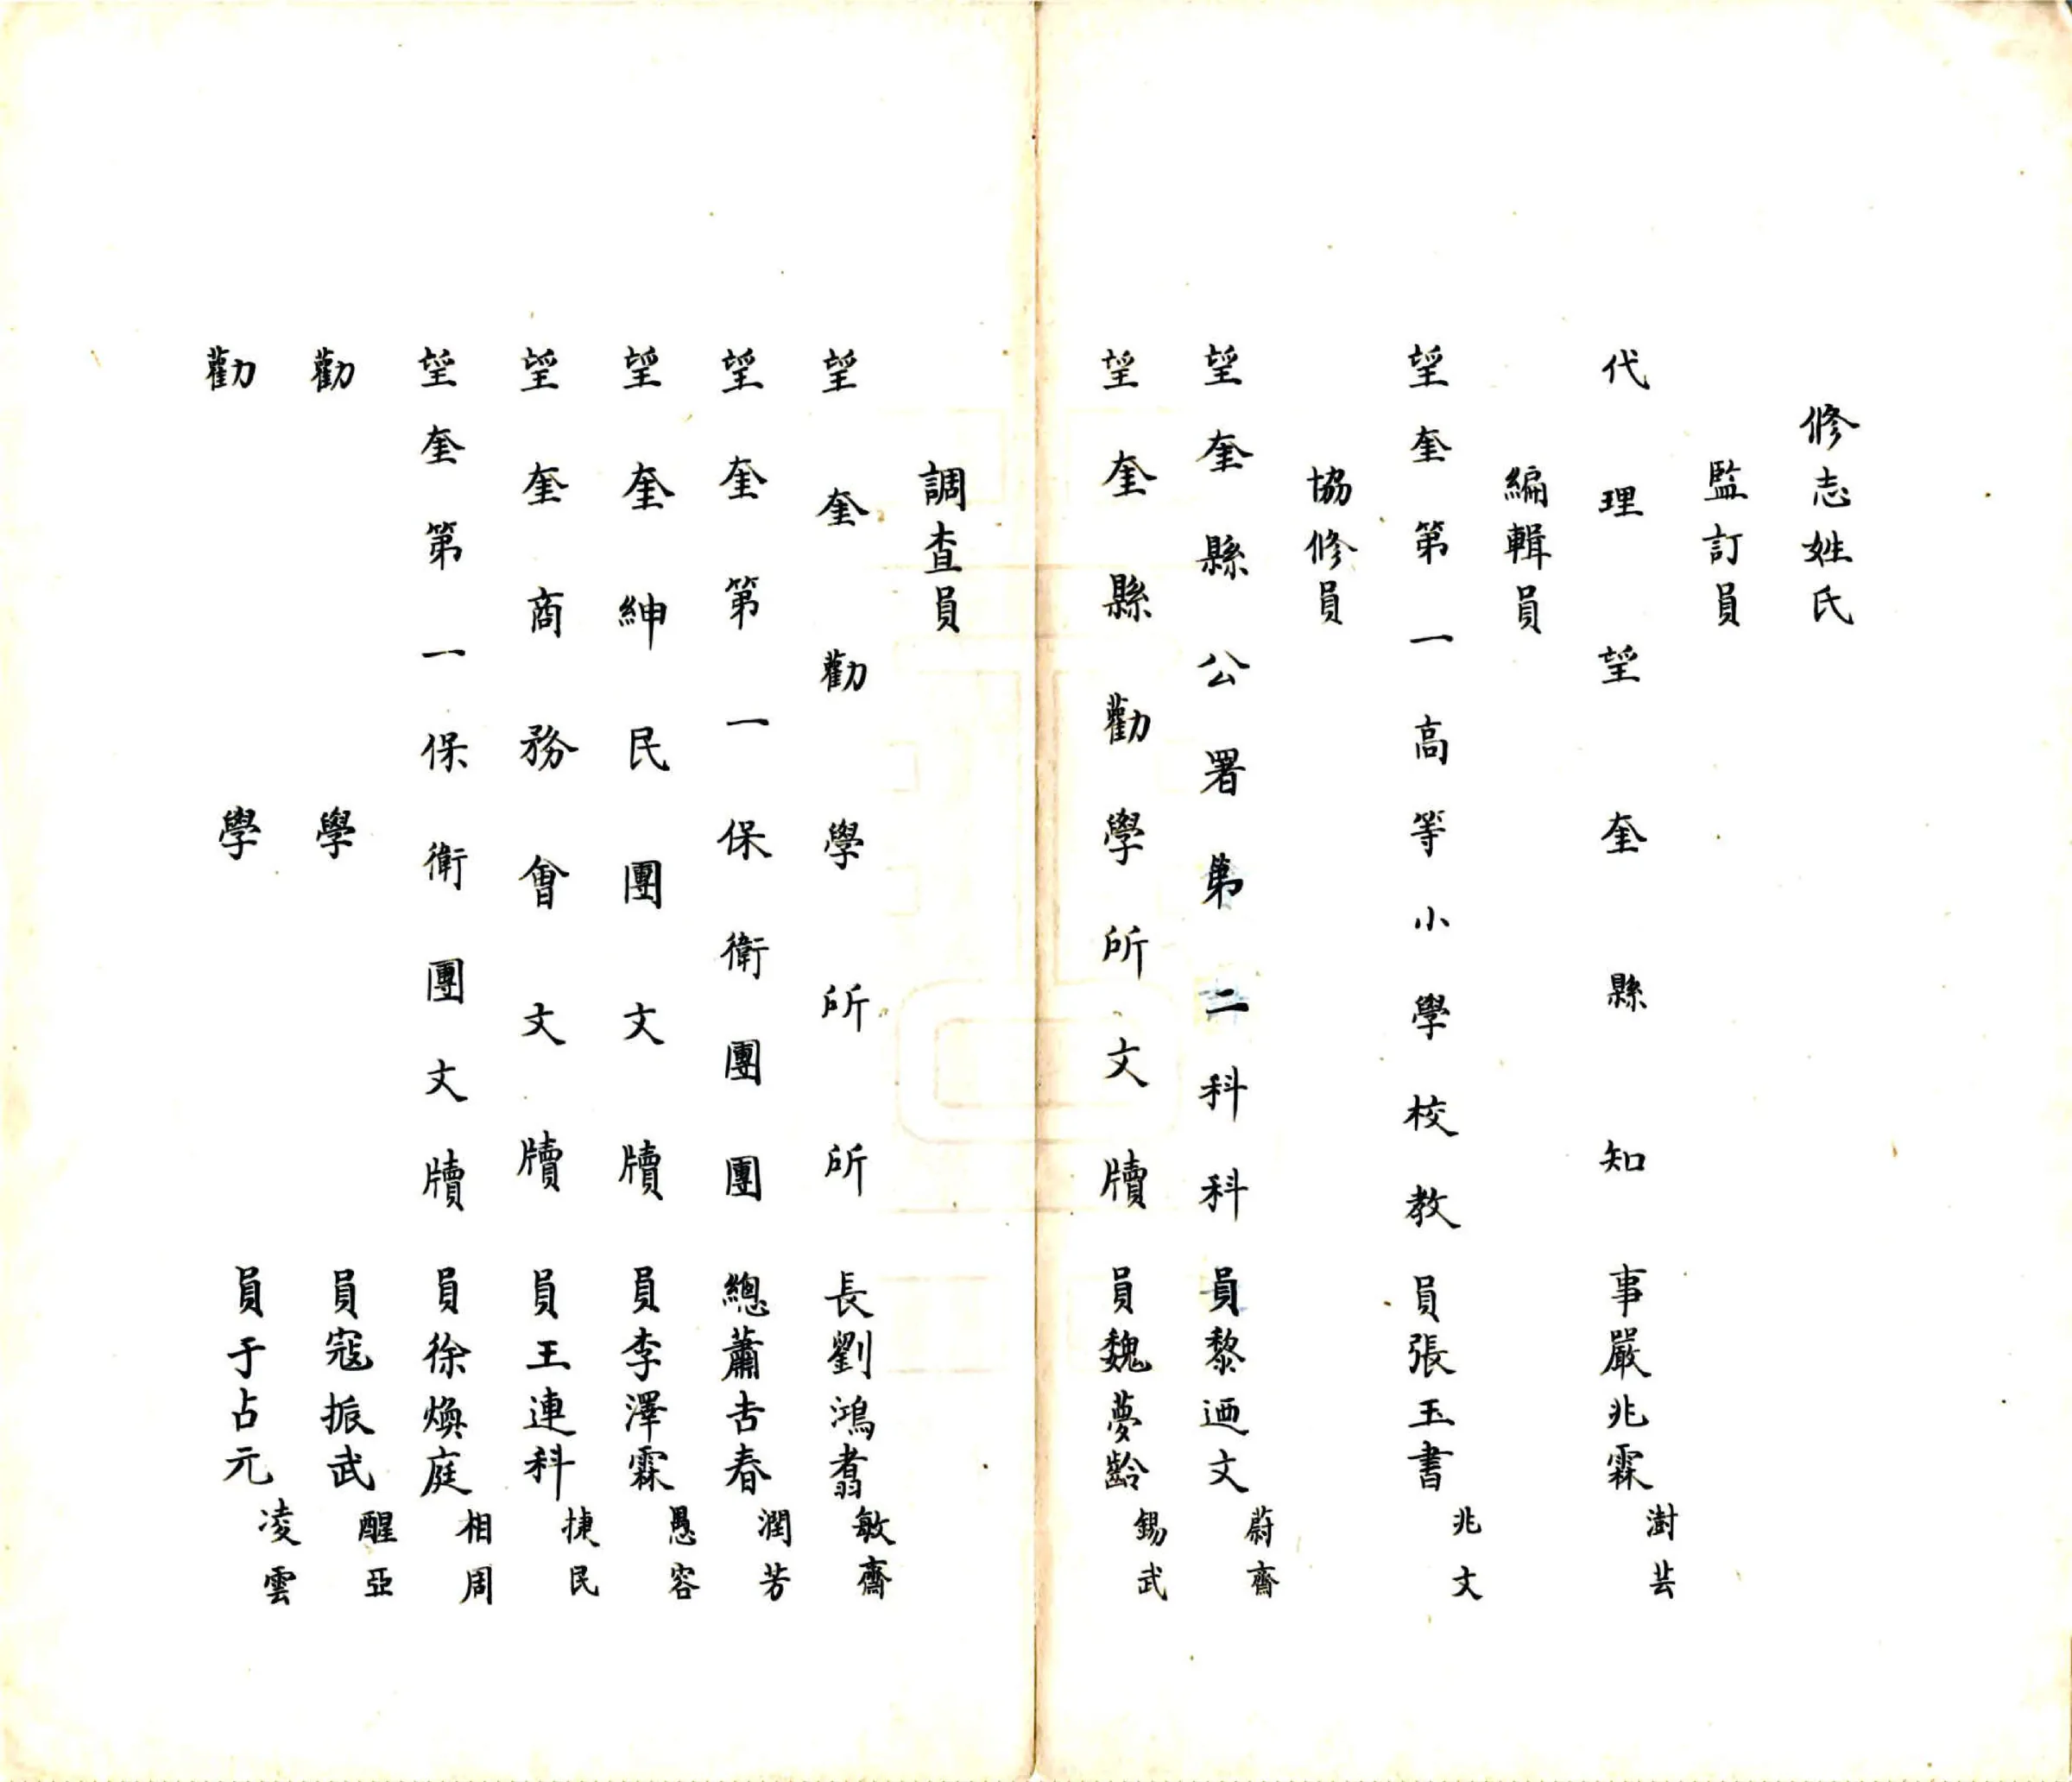 修志姓氏
監訂員
代理望奎縣知事嚴兆霖 澍芸
編輯員
望奎第一高等小學校教員張玉書 兆文
協修員
望奎縣公署第二科科員黎迺文 蔚齋
望奎縣勸學所文牘員魏夢齡 錫武
調查員
望奎勸學所所長劉鴻翥 敏齋
望奎第一保衛團團總蕭吉春 潤芳
望奎紳民團文牘員李澤霖 愚容
望奎商務會文牘員王連科 捷民
望奎第一保衛團文牘員徐煥庭 相周
勸學員寇振武 醒亞
勸學員于占元 凌雲